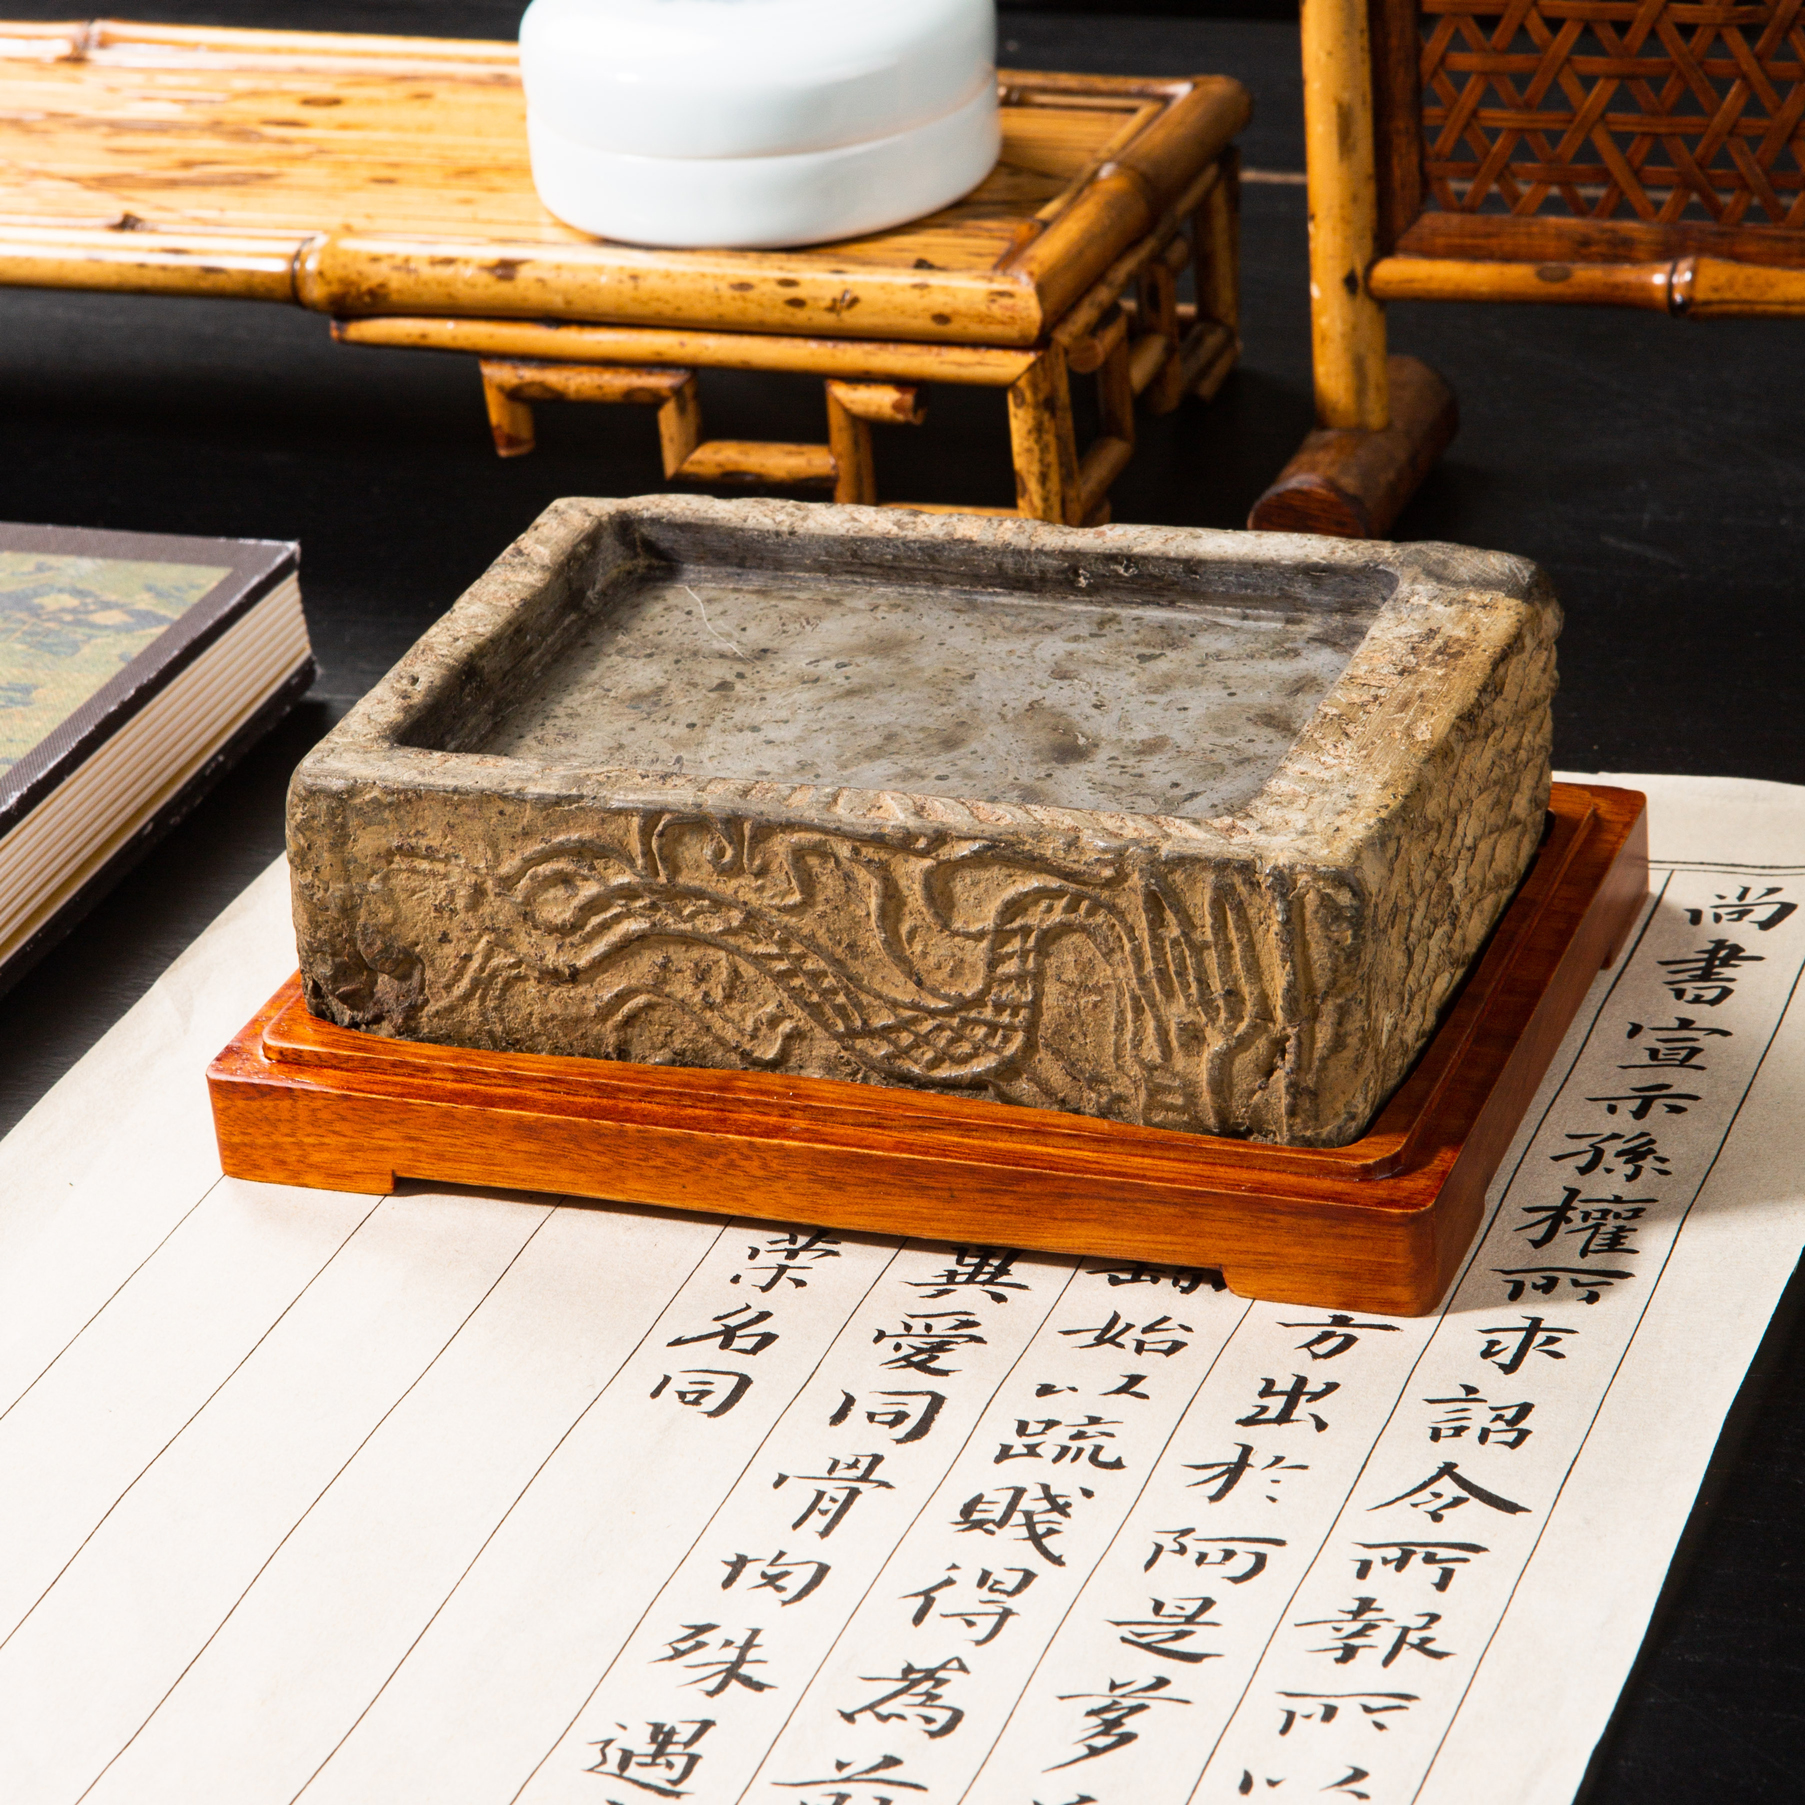 尚書宣示孫權所求詔令所報所以
方出於阿是芻
始以疏賤得為前
異愛同骨肉殊遇
榮名同